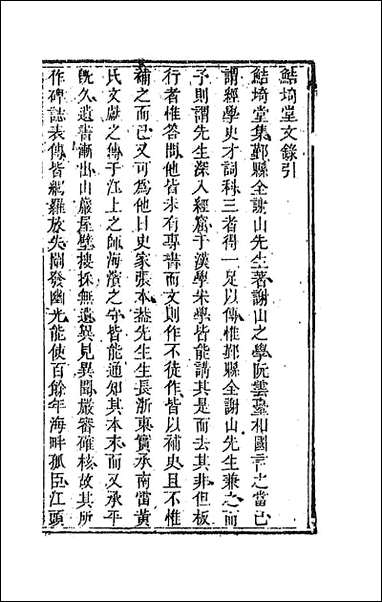 鮚埼堂文錄引
鮚埼堂集鄞縣全謝山先生著謝山之學阮雲臺相國言之當已
謂經學史才詞科三者得一足以傳惟鄞縣全謝山先生兼之而
予則謂先生深入經窟于漢學宋學皆能講其是而去其非但板
行者惟答問他皆未有專書而文則作不徒作皆以補史且不惟
補之而已又可為他日史家張本葢先生生長浙東實承南雷黃
氏文獻之傳于江上之師海濱之守皆能通知其本末而又承平
既久遺書漸出山巖屋壁搜採無遺異見異聞嚴審確核故其所
作碑誌表傳皆網羅放失闡發幽光能使百餘年海畔孤臣江頭